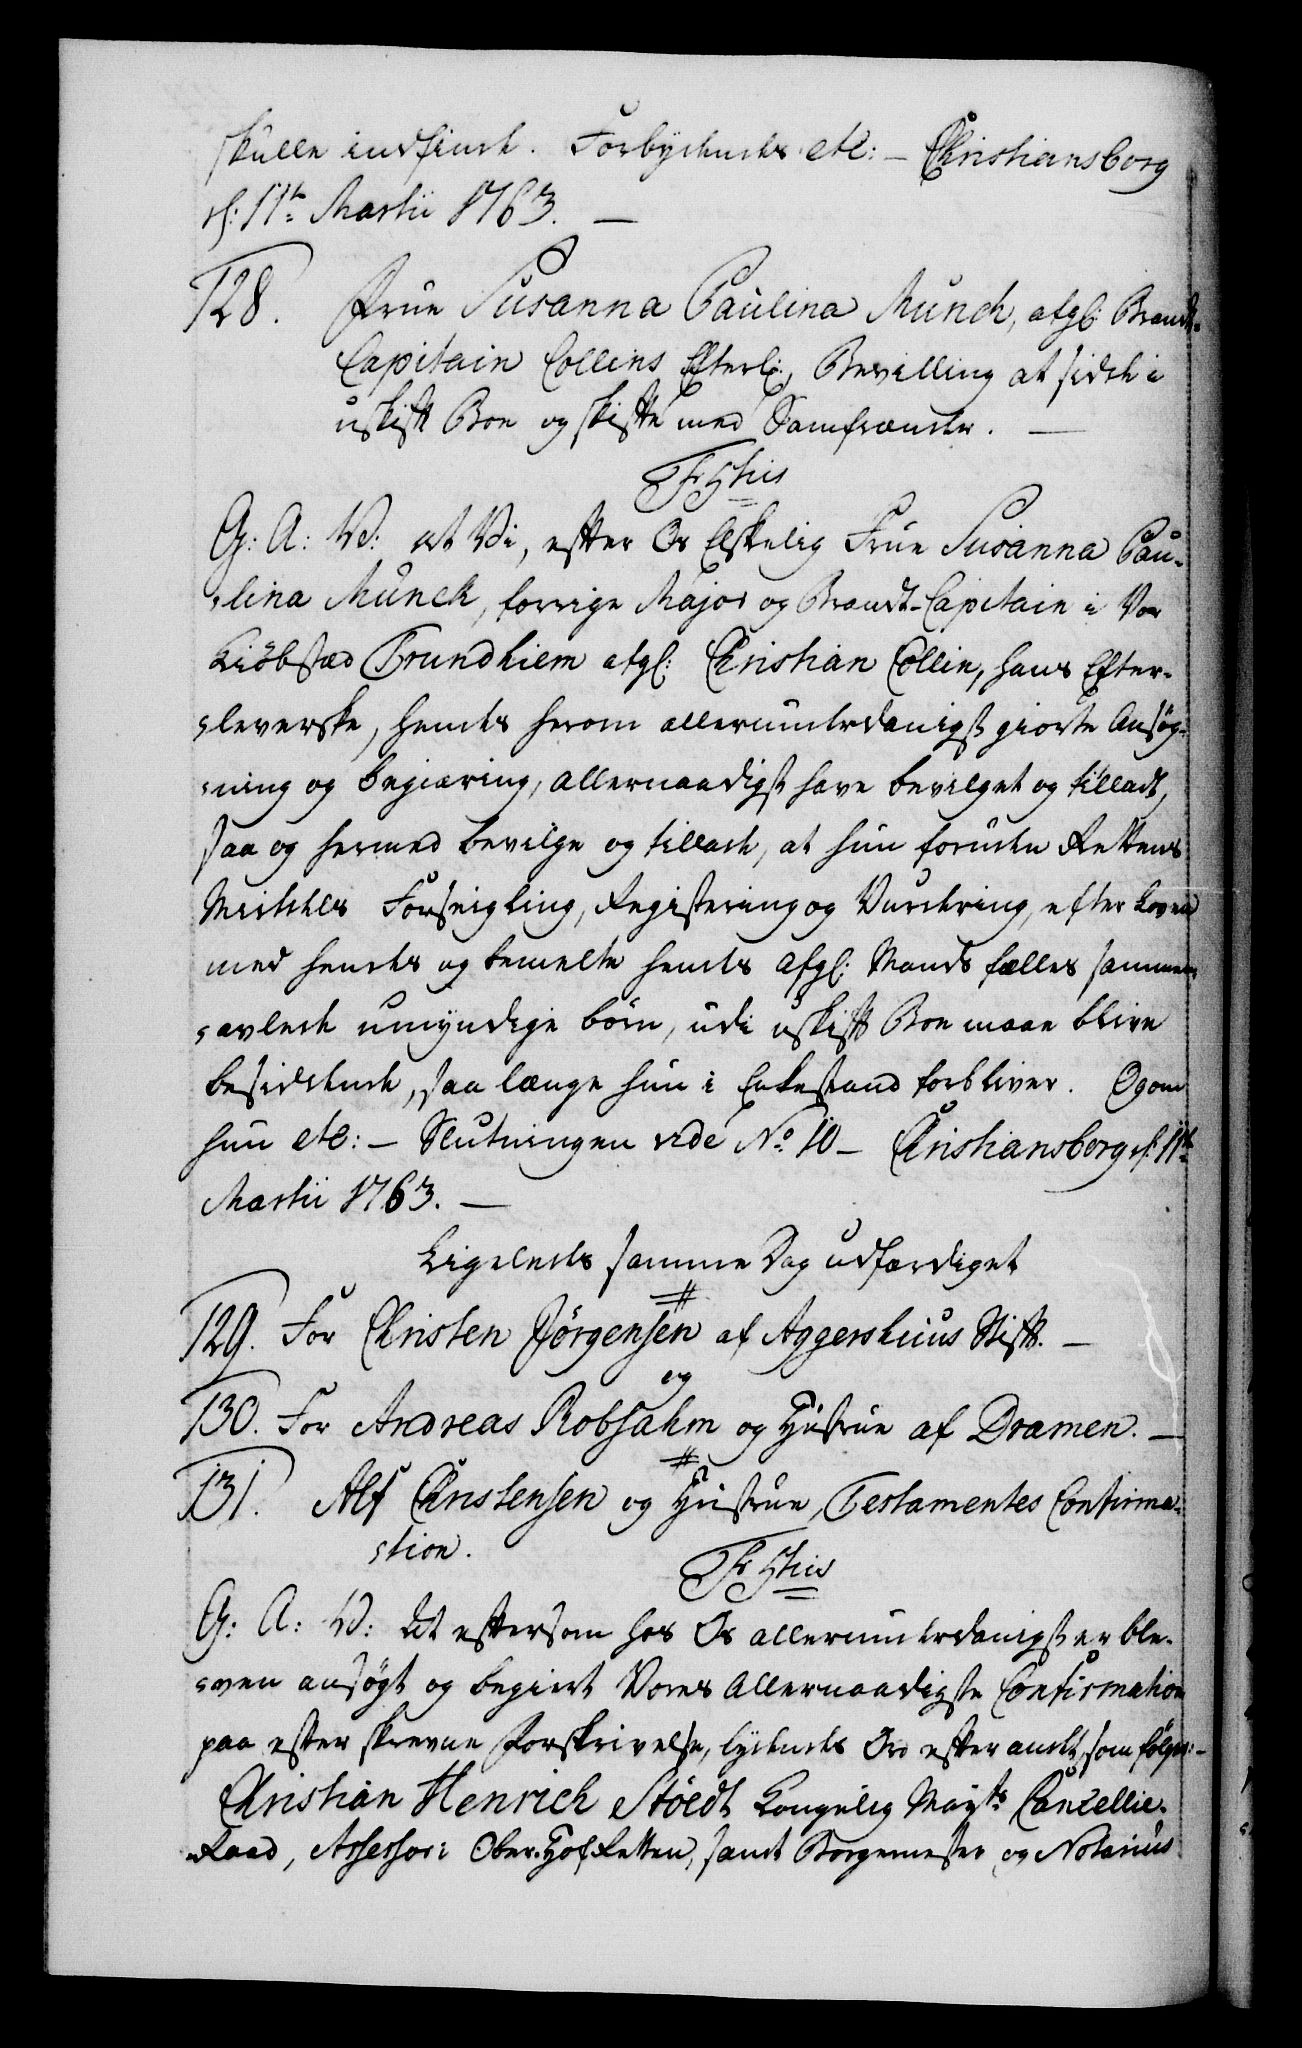 skulle indfinde. Forbydendes etc: – Christiansborg
d: 11te Martii 1763. –
128. Frue Susanna Paulina Munch, afgl: Brandt-
Capitain Collins Efterl:, Bevilling at sidde i
uskift Boe og skifte med Samfrænder. –
Fr 5tus
G: A: V: at Vi, efter Os Elskelig Frue Susanna Pau-
lina Munch, forrige Major og Brandt-Capitain i Vor
Kiöbstæd Trundhiem afgl: Christian Collin, hans Efter-
leverske, hendes herom allerunterdanigst giorte Ansög-
ning og begiæring, allernaadigst have bevilget og tilladt,
saa og hermed bevilge og tillade, at hun foruden Rettens
Middels Forseigling, Registering og Vurdering, efter Loven
med hendes og bemelte hendes afgl: Mands fælles sammen-
avlede umyndige börn, udi uskift Boe maae blive
besiddende, saa længe hun i Enkestand forbliver. Og om
hun etc: – Slutningen vide No 10 – Christiansborg d: 11te
Martii 1763. –
Ligeledes samme Dag udfærdiget
129. For Christen Jörgensen af Aggershuus Stift. –
og
130. For Andreas Robsahm og Hustrue af Dramen. –
131. Alf Christensen og Hustrue Testamentes Confirma-
tion.
Fr 5tus
G: A: V: At eftersom hos Os allerunterdanigst er ble-
ven ansögt og begiert Vores Allernaadigste Confirmation
paa efterskrevne Forskrivelse, lydendes Ord efter andet, som fölger: –
Christian Henrich Stöedt Kongelig Mayts Cancellie-
Raad, Assessor i Ober-Hof-Retten, samt Borgemester og Notarius